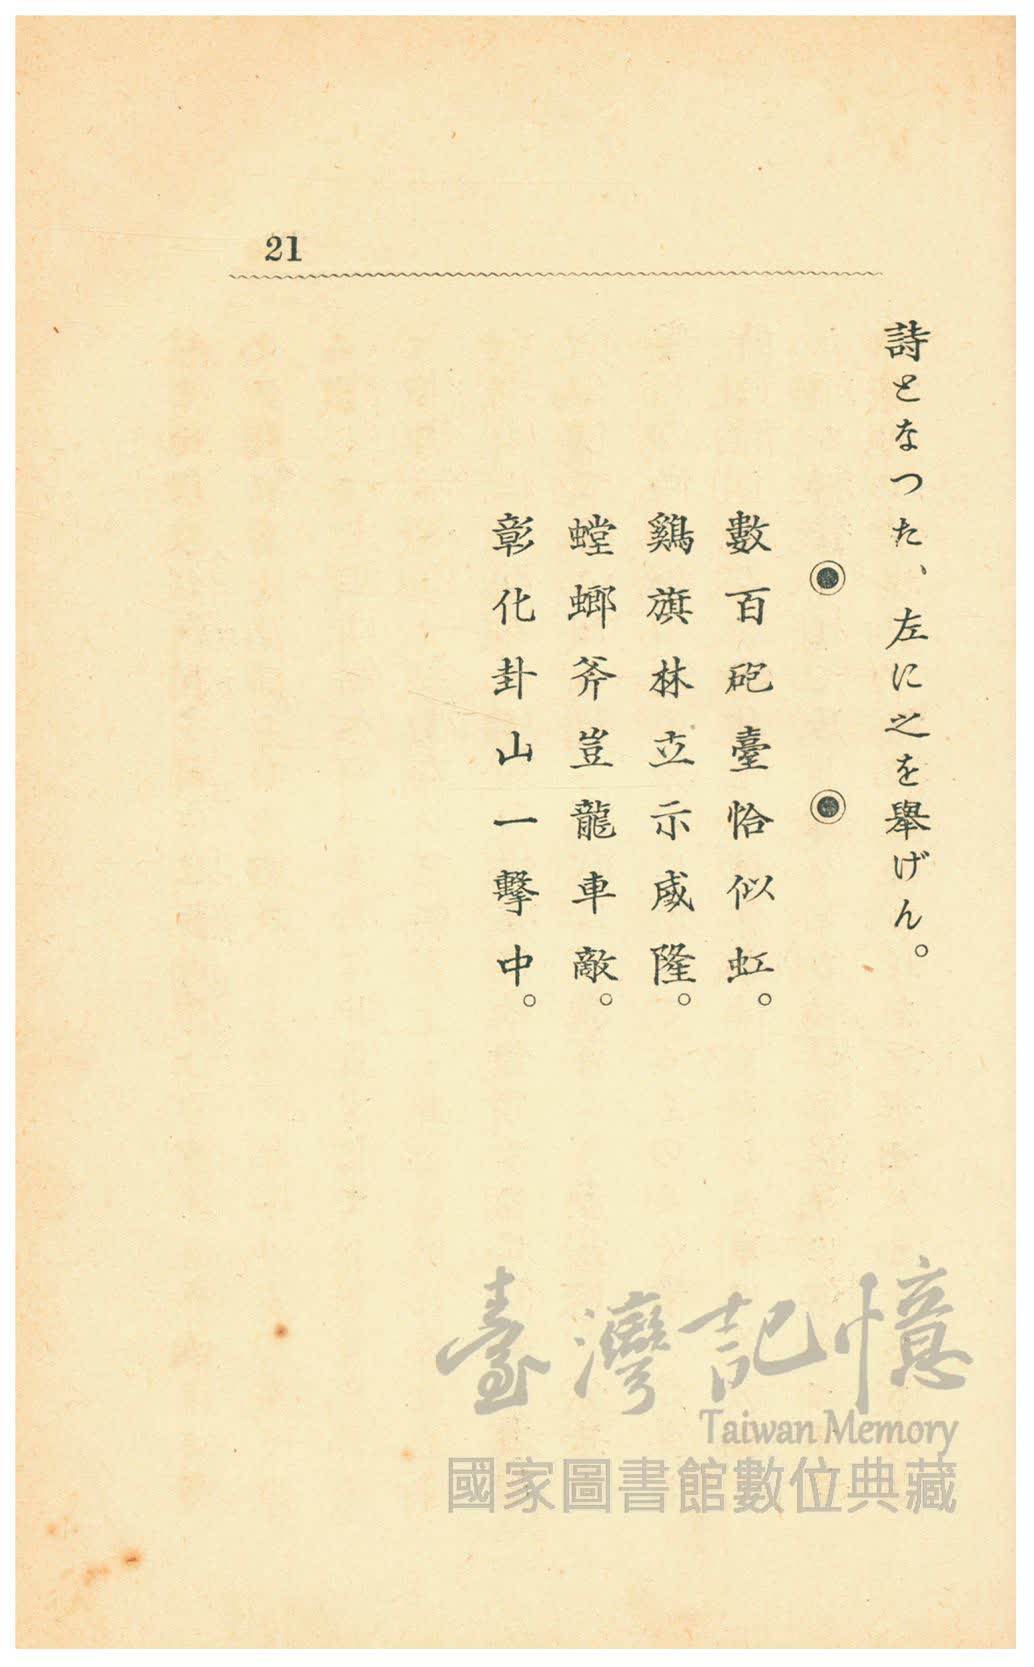 21
詩となつた、左に之を舉げん。
◉ ◉
數百砲臺恰似虹。
鷄旗林立示威隆。
螳螂斧豈龍車敵。
彰化卦山一擊中。
臺灣記憶
Taiwan Memory
國家圖書館數位典藏